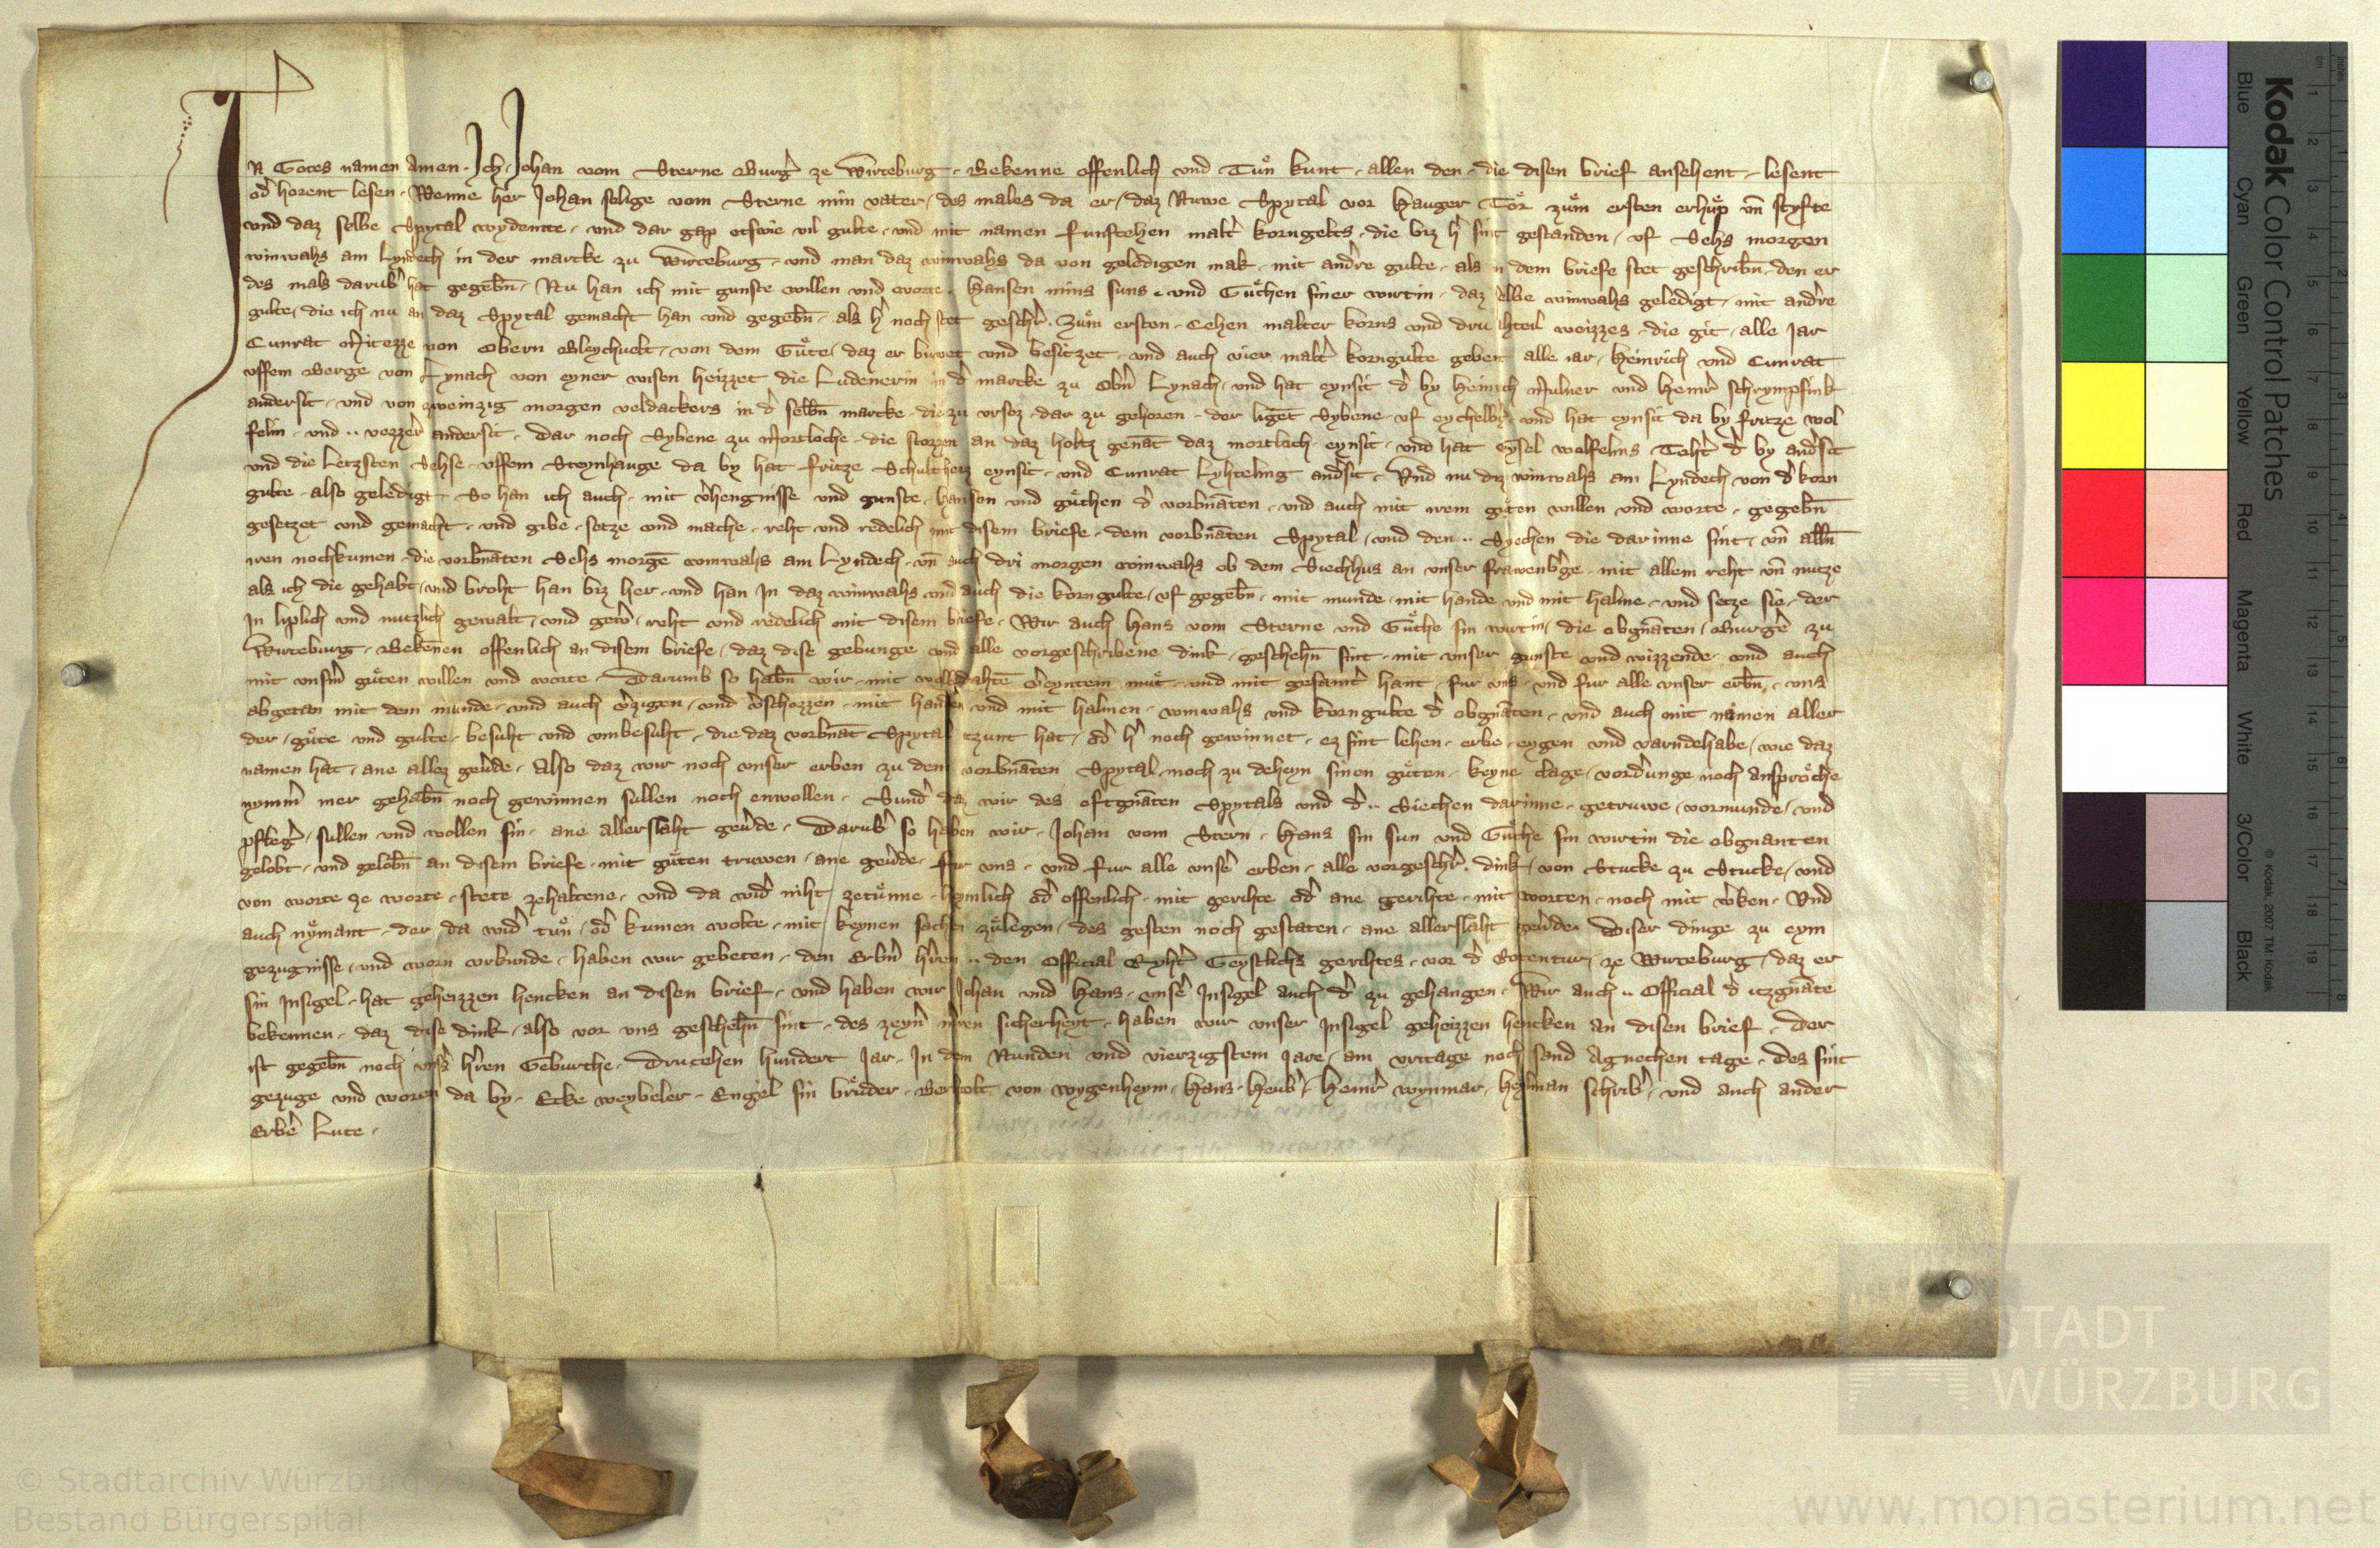 In Gotes namen Amen. Ich Johan vom Sterne Burg̛ ze Wirceburg. Bekenne offenlich und Tuͦn kunt. allen den. die disen brief ansehent. lesent
od̛ horent lesen. Wenne her Johan selige vom Sterne min vater, des males da er, daz Nuwe Spytal vor Hauger Tor zuͦm ersten erhuͦp vn̄ styfte
und daz selbe Spytal wydemte. und dar gap etswie vil gulte. und mit namen funftzehen malt̛ korngelts. die biz h̛ sint gestanden, uf Sehs morgen
winwahs am Lyndech in der marcke zu Wirceburg. und man daz winwahs da von geledigen mak. mit andr̛e gulte. als in dem briefe stet geschribn̄. den er
des mals darub̛ hat gegebn̄. Nu han ich mit gunste willen und worte. Hansen mins suns. und Guͦthen siner wirtin. daz selbe winwahs geledigt. mit andr̛e
gulte, die ich nu an daz Spytal gemacht han und gegebn̄. als h̛ noch stet geschr̛. Zuͦm ersten. Cehen malter korns und dru ahteil weizzes. die git. alle Jar
Cunrat von Obern Bleychvelt, von dem Guͦte, daz er buwet und besitzet. und auch vier malt̛ korngulte gebent alle iar, Heinrich und Cunrat
uffem Berge von Lynach von eyner wisen heizzet die Ludenerin in d̛ marcke zu Obn̛ Lynach, und hat eynsit d̛ by Heinrich Mulner und Heinr̛ schrympfink
andersit. und von zweinzig morgen veldackers in d̛ selbn̄ marcke. die zu ursez. dar zu gehoren. der ligēt Sybene. uf eychelb̛g. und hat eynsit da by fritze wol
felin. und .. vezzer̛ andersit. Dar noch Sybene zu Mortloche. die stozzen an daz holtz genāt daz mortloch. eynsit. und hat eysel wolfelins Toht̛ d̛ by and̛sit
und die Letzsten Sehse. uffem Steynhauge da by hat fritze Schultheiz eynsit. und Cunrat Lyhteling and̛sit. Und nu diz winwahs am Lyndech von d̛ korn
gulte. also geledigt. So han ich auch. mit v̛hengnisse und gunste. hansen und guͦthen d̛ vorbnāten. und auch mit irem guͦten willen und worte. gegebn̄
gesetzet und gemacht. und gibe. setze und mache. reht und redelich mit disem briefe. dem vorbnāten Spytal, und den .. Syechen die darinne sint. vn̄ alln̄
iren nochkumen. die vorbnāten Sehs morgē winwahs am Lyndech. vn̄ auch dri morgen winwahs ob dem Siechhus an unser frawenb̛ge. mit allem reht vn̄ nutze
als ich die gehabt, und broht han biz her. und han In daz winwahs und auch die korngulte, uf gegebn̄. mit munde. mit hande und mit halme. und setze sie. der
In liplich und nutzlich gewalt, und gew̛. reht und redelich mit disem briefe. Wir auch Hans vom Sterne und Guͦthe sin wirtin, die obgnāten, Burger̛ zu
Wirceburg. Bekēnen offenlich an disem briefe, daz dise gebunge und alle vorgeschribene dink, geschehn̄ sint. mit unser gunste und wizzende. und auch
mit unsm̛ guͦten willen und worte. Darumb so habn̄ wir. mit wolbedahtē v̛eyntem muͦt. und mit gesamt̛ hant. fur uns. und fur alle unser erbn̄. uns
abgetan mit dem munde. und auch v̛zigen, und v̛schozzen. mit handen und mit halmen. winwahs und korngulte d̛ obgnāten. und auch mit namen aller
der, guͦte und gulte. besuht und umbesuht. die daz vorbnāt Spytal itzunt hat, od̛ h̛ noch gewinnet. ez sint lehen. erbe. eygen und varndehabe, wie daz
namen hat. ane allez gev̛de. Also daz wir noch unser erben zu dem vorbnāten Spytal. noch zu deheyn sinen guͦten. keyne clage, vord̛unge noch ansproͤche
nymm̛ mer gehabn̄ noch gewinnen sullen noch enwollen. Sund̛ daz wir des oftgnāten Spytals und d̛ .. Siechen darinne. getruwe, vormunde, und
pfleg̛. sullen und wollen sin. ane allerslaht gev̛de. Darub̛ so haben wir. Johan vom Stern. Hans sin sun und Guͦthe sin wirtin die obgnanten
gelobt. und gelobn̄ an disem briefe. mit guͦten truwen, ane gev̛de. fur uns. und fur alle unser̛ erben. alle vorgeschr̛. dink, von Stucke zu Stucke, und
von worte ze worte. stete zehaltene. und da wid̛ niht zetuͦnne. heymlich od̛ offenlich. mit gerihte od̛ ane gerihte. mit worten. noch mit w̛ken. Und
auch nymant. der da wid̛ tuͦn, od̛ kumen wolte. mit keynen sachen zuͦlegen, des gesten noch gestaten. ane allerslaht gev̛de. Diser dinge zu eym
gezugnisse, und worn urkunde. haben wir gebeten. den Erbn̛ hr̛en .. den Official Ryht̛ Geystlichs gerihtes. vor d̛ Rotentur, ze Wirceburg, daz er
sin Insigel. hat geheizzen hencken an disen brief. und haben wir Johan und Hans. unser̛ Insigel auch d̛ zu gehangen. Wir auch .. Official d̛ itzgnāte
bekennen. daz dise dink, also vor uns geschehn̄ sint. des zeym̛ mr̛en sicherheyt. haben wir unser Insigel geheizzen hencken an disen brief. Der
ist gegebn̄ noch uns̛s hr̛en Geburthe. Drutzehen hundert Jar. In dem Nunden und vierzigstem Jare, am vritage noch sand Agnethen tage. Des sint
gezuge und woren da by. Ecke weybeler. Engel sin bruͦder. Bertolt von wygenheym. Hans. Heub̛. Heinr̛ wynmar. Heylman schrib̛. und auch ander
Erber̛ Lute.
Kodak Color Control Patches
Blue Cyan Green Yellow Red Magenta White 3/Color Black
© Kodak, 2007 TM: Kodak
STADT
WÜRZBURG
© Stadtarchiv Würzburg
Bestand Bürgerspital
www.monasterium.net